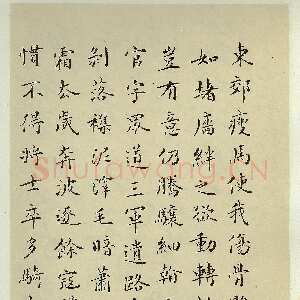 東郊瘦馬使我傷骨
如堵墻絆之欲動轉
豈有意仍騰驤細看
官字眾道三軍遺路
剝落雜泥滓毛暗蕭
霜去歲奔波逐餘寇
惜不得將士卒多騎
Shufawang.CN